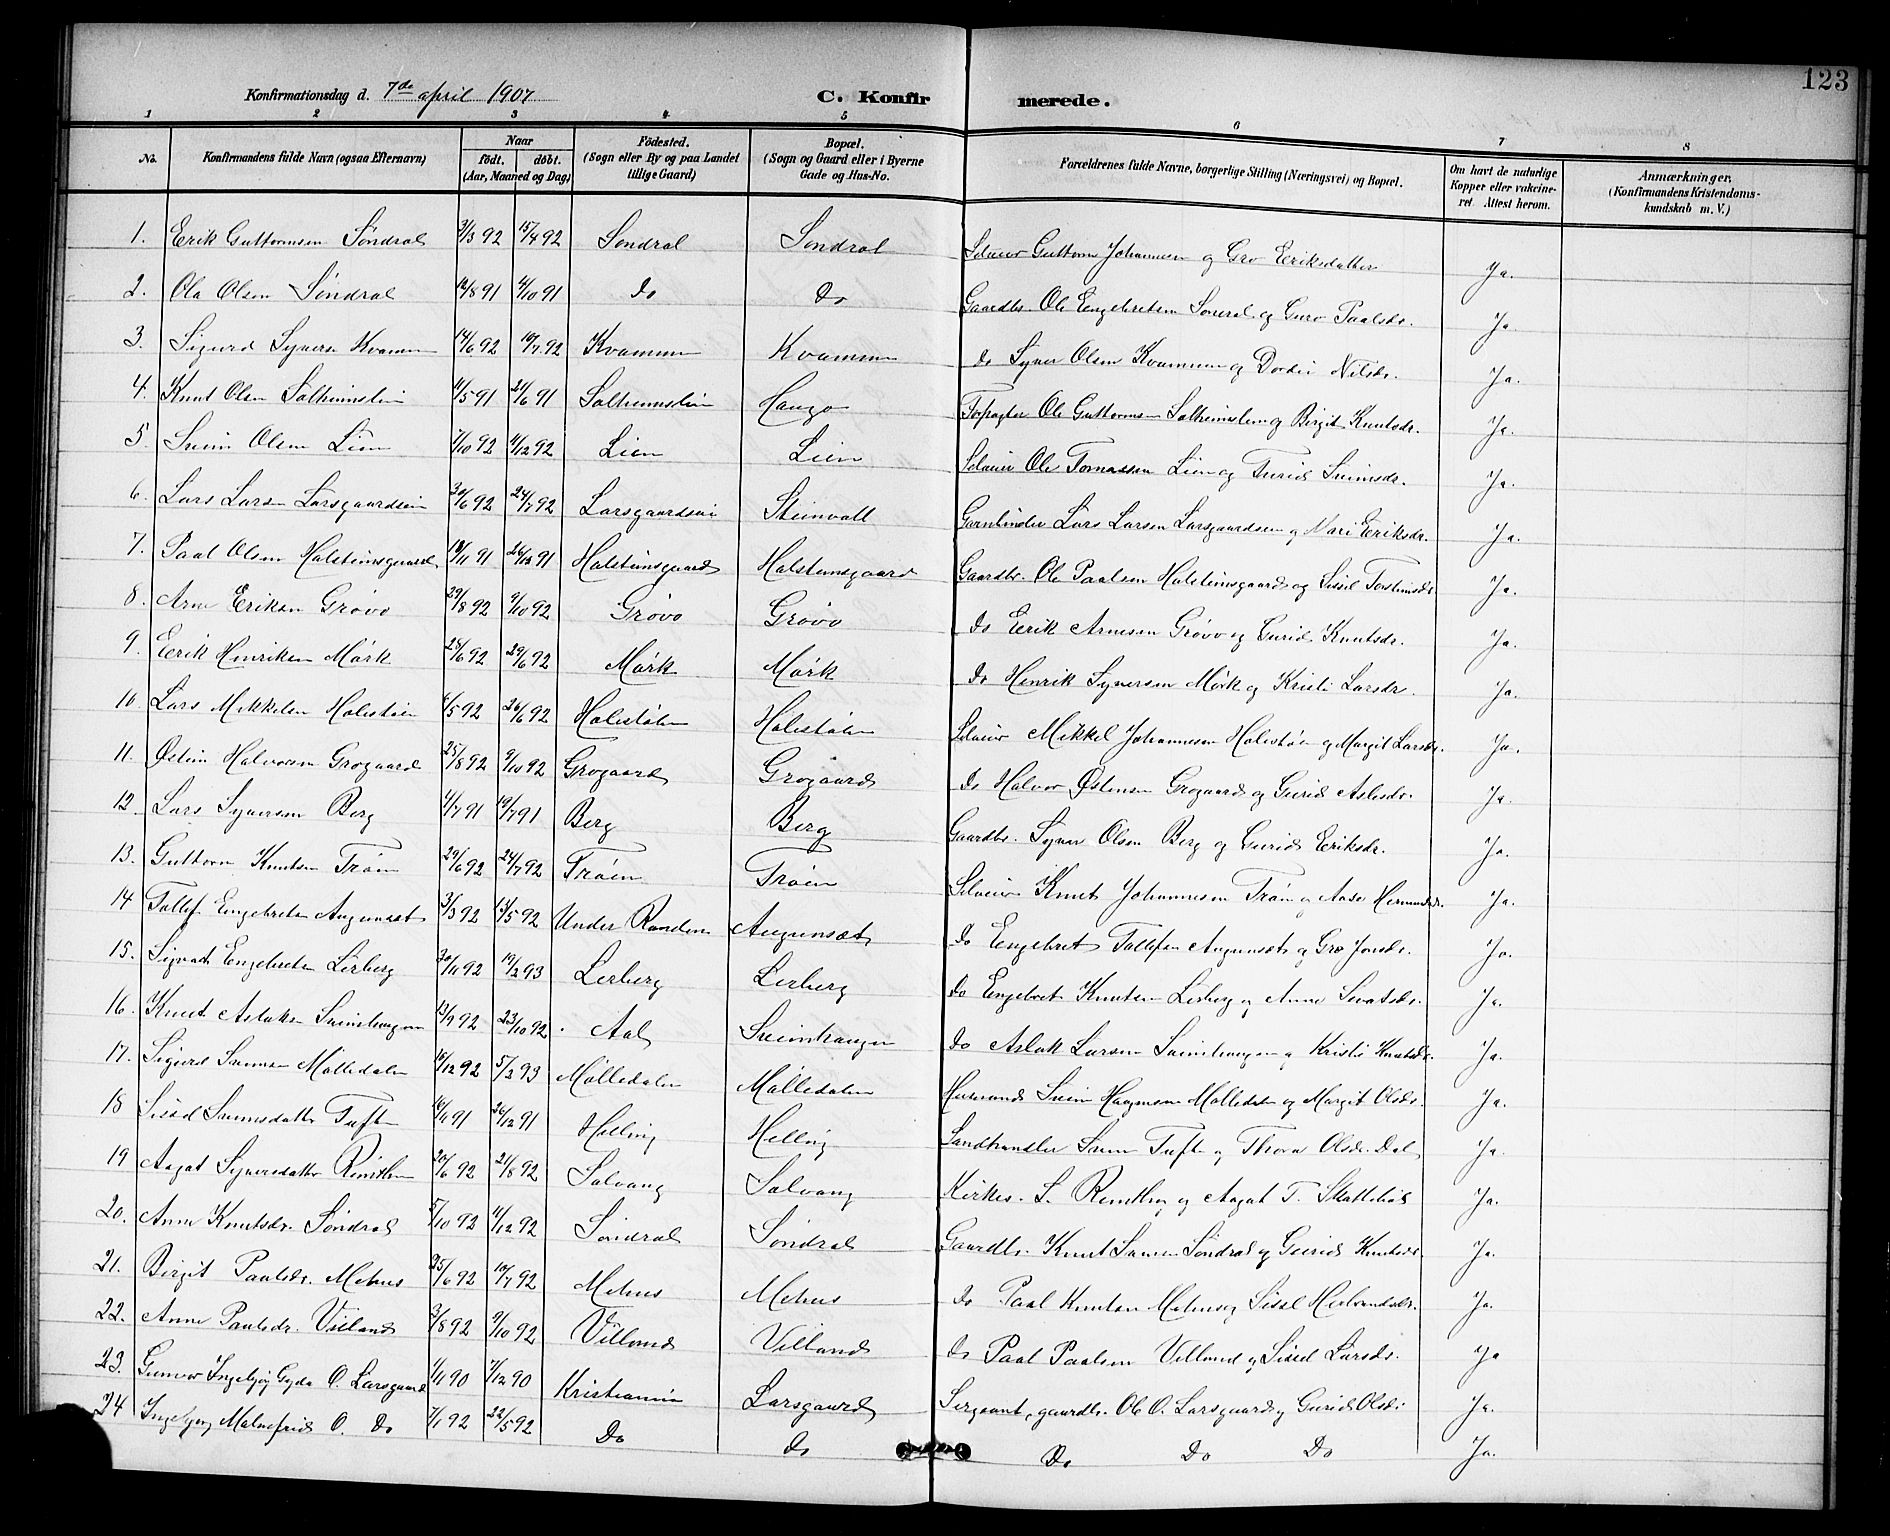 123
Konfirmationsdag d. 7de april 1907
C. Konfirmerede.
1 2 3 4 5 6 7 8
No. | Konfirmandens fulde Navn (ogsaa Efternavn) | Naar født. døbt. (Aar, Maaned og Dag) | Fødested. (Sogn eller By og paa Landet tillige Gaard) | Bopæl. (Sogn og Gaard eller i Byerne Gade og Hus-No. | Forældrenes fulde Navne, borgerlige Stilling (Næringsvei) og Bopæl. | Om havt de naturlige Kopper eller vakcineret. Attest herom. | Anmærkninger. (Konfirmandens Kristendomskundskab m. V.)
1. Erik Guttormsen Søndral 3/3 92 15/4 92 Søndral Søndral Selveier Guttorm Johannesen og Gro Eriksdatter Ja.
2. Ola Olsen Søndral 12/8 91 4/10 91 do do Gaardbr. Ole Engebretsen Søndral og Guro Paalsdr. Ja.
3. Sigurd Syversen Kvammen 14/6 92 10/7 92 Kvammen Kvammen do Syver Olsen Kvammen og Dordei Nilsdr. Ja.
4. Knut Olsen Solheimslien 11/5 91 21/6 91 Solheimslien Hauga Forpagter Ole Guttormsen Solheimslien og Birgit Knutsdr. Ja.
5. Svein Olsen Lien 7/10 92 11/12 92 Lien Lien Selveier Ole Tomassen Lien og Turid Sveinsdr. Ja.
6. Lars Larsen Larsgaardseie 30/6 92 24/7 92 Larsgaardseie Steinvoll Lars Larsen Larsgaardseien og Mari Eriksdr. Ja.
7. Paal Olsen Halsteinsgaard 18/11 91 26/12 91 Halsteinsgaard Halsteinsgaard Gaardbr. Ole Paalsen Halsteinsgaard og Sissil Torsteinsdr. Ja.
8. Arne Eriksen Grøvo 29/8 92 9/10 92 Grøvo Grøvo do Erik Arnesen Grøvo og Gurid Knutsdr. Ja.
9. Erik Henriksen Mørk 25/6 92 29/6 92 Mørk Mørk do Henrik Syversen Mørk og Kristi Larsdr. Ja.
10. Lars Mikkelsen Holestølen 6/5 92 26/6 92 Holestølen Holestølen Selveier Mikkel Johannesen Holestølen og Margit Larsdr. Ja.
11. Østein Halvorsen Grøgaard 25/8 92 9/10 92 Grøgaard Grøgaard do Halvor Østensen Grøgaard og Gurid Aslesdr. Ja.
12. Lars Syversen Berg 4/7 91 19/7 91 Berg Berg Gaardbr. Syver Olsen Berg og Gurid Eriksdr. Ja.
13. Guttorm Knutsen Trøim 29/6 92 24/7 92 Trøim Trøim Selveier Knut Johannesen Trøim og Aase Ja.
14 Tollef Engebretsen Augunset 3/3 92 /5 92 Under Randen Augunsæt do Engebret Tollefsen Augunsæt og Gro Jonsdr. Ja.
15. Sigvat Engebretsen Lerberg 20/11 92 19/2 93 Lerberg Lerberg do Engebret Knutsen Lerberg og Anne Sevatsdr. Ja.
16. Knut Aslaksen Sveinhaugen 13/9 92 23/10 92 Aal Sveinhaugen do Aslak Larsen Sveinhaugen og Kristi Knutsdr. Ja.
17. Sigurd Sveinsen Mølledalen 16/12 92 5/2 93 Mølledalen Mølledalen Husmand Svein Haagensen Mølledalen og Margit Olsdr. Ja.
18 Sissel Sveinsdatter Tufte 16/11 91 26/12 91 Helling Helling Landhandler Svein Tufte og Thora Olsdr. Dal Ja.
19 Aagot Syversdatter Remthun 20/6 92 21/8 92 Solvang Solvang Kirkes. S. Remthun og Aagot T. Skattebøl Ja.
20. Anne Knutsdr. Søndral 5/10 92 11/12 92 Søndral Søndral Gaardbr. Knut Sveinsen Søndral og Gurid Knutsdr. Ja.
21. Birgit Paalsdr. Mehus 25/6 92 10/7 92 Mehus Mehus do Paal Knutsen Mehus og Sissel Herbrandsdr. Ja.
22. Anne Paalsdr. Villand 3/8 92 9/10 92 Villand Villand do Paal Paalsen Villand og Sissel Larsdr. Ja
23. Gunvor Ingebjørg Gyda O. Larsgaard 1/11 90 7/12 90 Kristiania Larsgaard Sergeant, gaardbr. Ole O. Larsgaard og Gurid Olsdr. Ja.
24 Ingebjørg Malmfrid O. Do 7/1 92 22/5 92 Do do Do Do Do Ja.